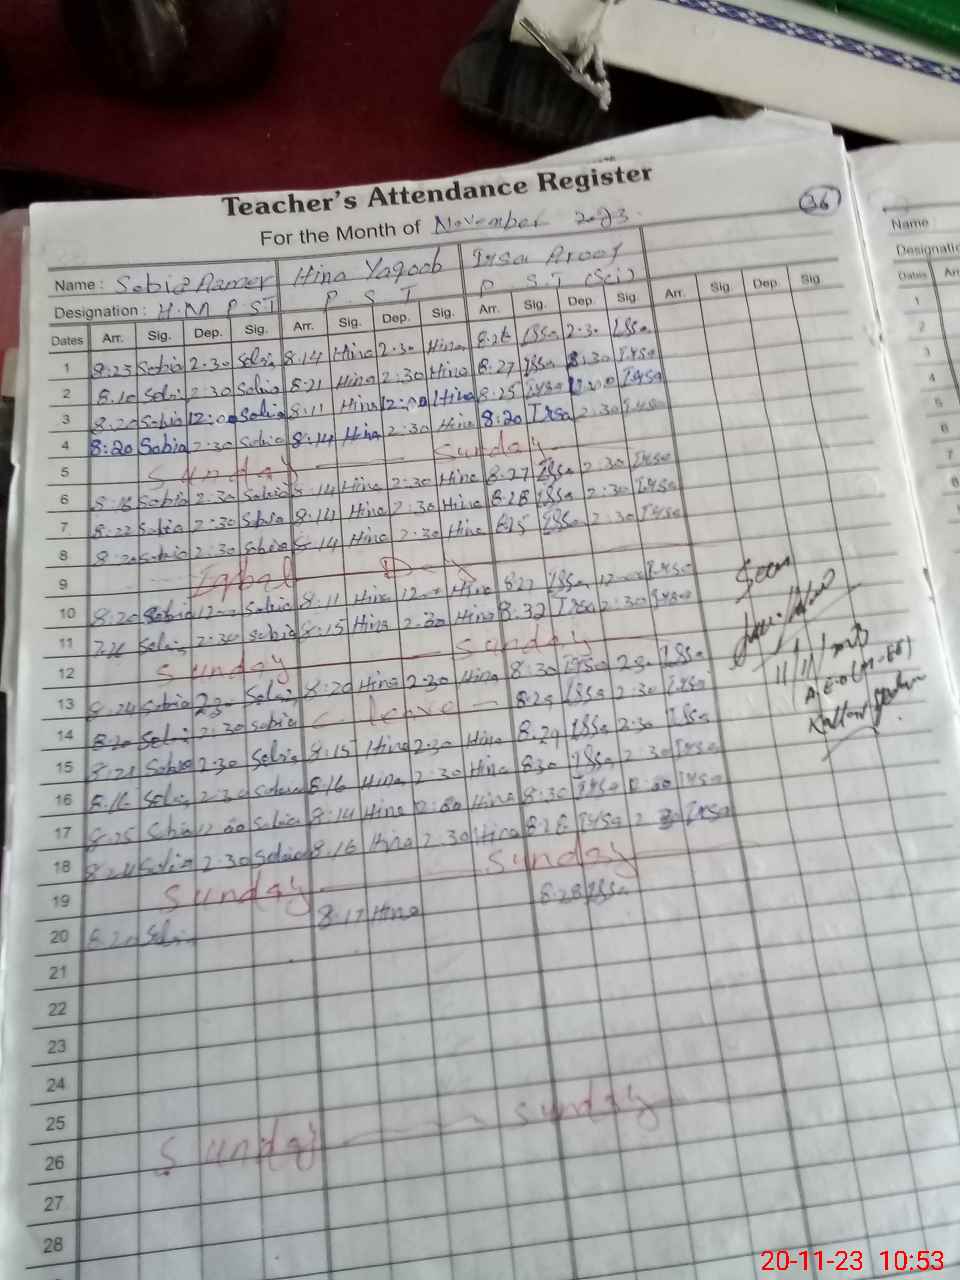 Teacher's Attendance Register
36
For the Month of November 2023.
Name : Sobia Hina Yaqoob Irsa
Designation : H.M P ST P S T P S.T (Sci)
Dates Arr. Sig. Dep. Sig. Arr. Sig. Dep. Sig. Arr. Sig. Dep. Sig. Arr. Sig. Dep. Sig.
1 8:23 Sobia 2:30 Sobia 8:14 Hina 2:30 Hina 8:26 Irsa 2:30 Irsa
2 8:10 Sobia 2:30 Sobia 8:21 Hina 2:30 Hina 8:27 Irsa 2:30 Irsa
3 8:20 Sobia 12:00 Sobia 8:11 Hina 12:00 Hina 8:25 Irsa 12:00 Irsa
4 8:20 Sobia 2:30 Sobia 8:14 Hina 2:30 Hina 8:20 Irsa 2:30 Irsa
5 Sunday Sunday
6 8:18 Sobia 2:30 Sobia 8:14 Hina 2:30 Hina 8:27 Irsa 2:30 Irsa
7 8:22 Sobia 2:30 Sobia 8:14 Hina 2:30 Hina 8:28 Irsa 2:30 Irsa
8 8:20 Sobia 2:30 Sobia 8:14 Hina 2:30 Hina 8:25 Irsa 2:30 Irsa
9 Iqbal Day
10 8:20 Sobia 12:00 Sobia 8:11 Hina 12:00 Hina 8:27 Irsa 12:00 Irsa
Seen
11 Sobia 2:30 Sobia 8:15 Hina 2:30 Hina 8:32 Irsa 2:30 Irsa
12 Sunday Sunday
11/11/2023
13 8:24 Sobia 2:30 Sobia 8:20 Hina 2:30 Hina 8:30 Irsa 2:30 Irsa
A.E.O (M-EE)
14 8:20 Sobia 2:30 Sobia C. leave 8:29 Irsa 2:30 Irsa
15 8:21 Sobia 2:30 Sobia 8:15 Hina 2:30 Hina 8:29 Irsa 2:30 Irsa
16 8:16 Sobia 2:30 Sobia 8:16 Hina 2:30 Hina 8:30 Irsa 2:30 Irsa
17 8:25 Sobia 12:00 Sobia 8:14 Hina 12:00 Hina 8:30 Irsa 12:00 Irsa
18 8:24 Sobia 2:30 Sobia 8:16 Hina 2:30 Hina 8:28 Irsa 2:30 Irsa
19 Sunday Sunday
20 8:20 Sobia 8:17 Hina 8:28 Irsa
21
22
23
24
25
26 Sunday Sunday
27
28
Name
Dates
1
2
3
4
5
6
7
8
20-11-23 10:53